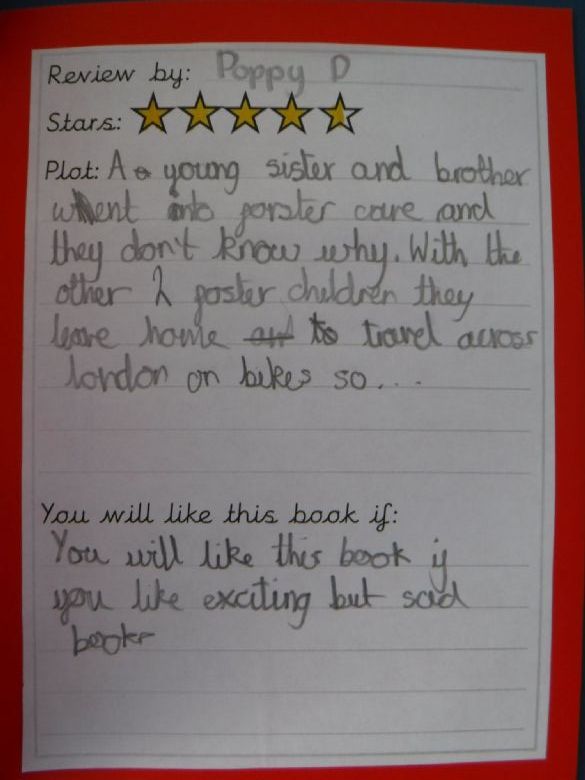 Review by: Poppy D
Stars:
Plot: A young sister and brother
went into forster care and
they don't know why. With the
other 2 foster children they
leave home and to travel across
london on bikes so...
You will like this book if:
You will like this book if
you like exciting but sad
books